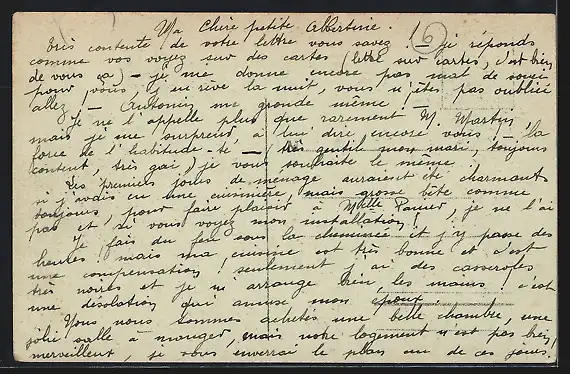 Ma Chère petite Albertine.
6
très contente de votre lettre vous savez ! — je réponds
comme vos voyez sur des cartes (lettre sur cartes, c'est bien
de vous ça) — je me donne encore pas mal de souci
pour vous, j'en rêve la nuit, vous n'êtes pas oubliée
allez ! — Antonin me gronde même ! —
Je ne l'appelle plus que rarement M. Martin
mais je me surprend à lui dire encore vous ! — la
force de l'habitude — (très gentil mon mari, toujours
content, très gai) je vous souhaite le même.
Les premiers jours de ménage auraient été charmants
si j'avais eu une cuisinière, mais grosse bête comme
toujours, pour faire plaisir à Mlle, je ne l'ai
pas et si vous voyez mon installation !
Je fais du feu sous la cheminée et j'y passe des
heures ! mais ma cuisine est très bonne et c'est
une compensation ! seulement j'ai des casseroles
très noires et je m'arrange bien les mains ! c'est
une désolation qui amuse mon époux.
Nous nous sommes achetés une belle chambre, une
jolie salle à manger, mais notre logement n'est pas bien
merveilleux, je vous enverrai le plan un de ces jours.